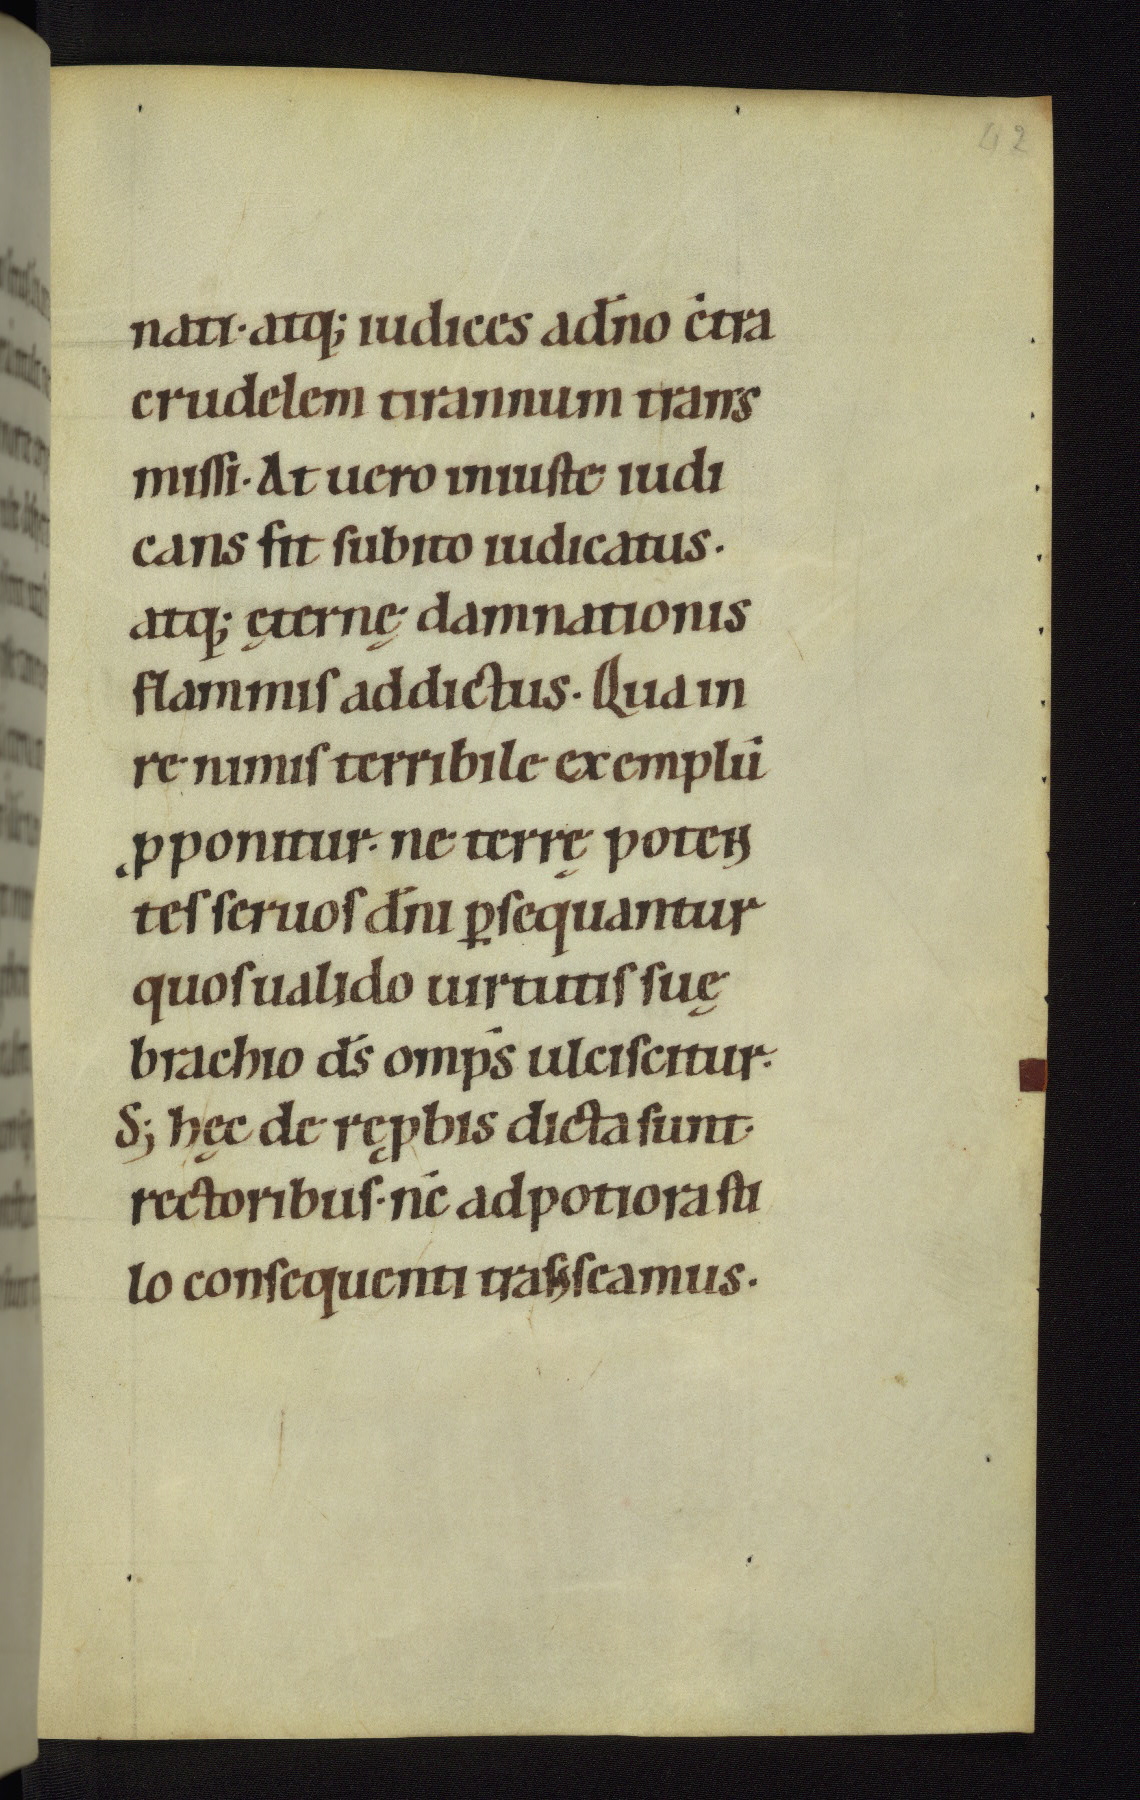 42
nati· atq; iudices a dn̄o c̄tra
crudelem tirannum trans
miſſi· At uero iniuſte iudi
cans fit ſubito iudicatus·
atq; ęternę damnationis
flammiſ addictus· Qua in
re nimiſ terribile exemplū
ꝓponitur· ne terrę poten
teſ ſeruoſ dn̄i ꝑſequantur
quoſ ualido uirtutiſ ſuę
brachio dſ̄ omp̄s ulciſcitur·
S; hęc de ręꝓbis dicta ſunt
rectoribuſ· nc̄ ad potiora ſti
lo conſequenti tranſeamus·